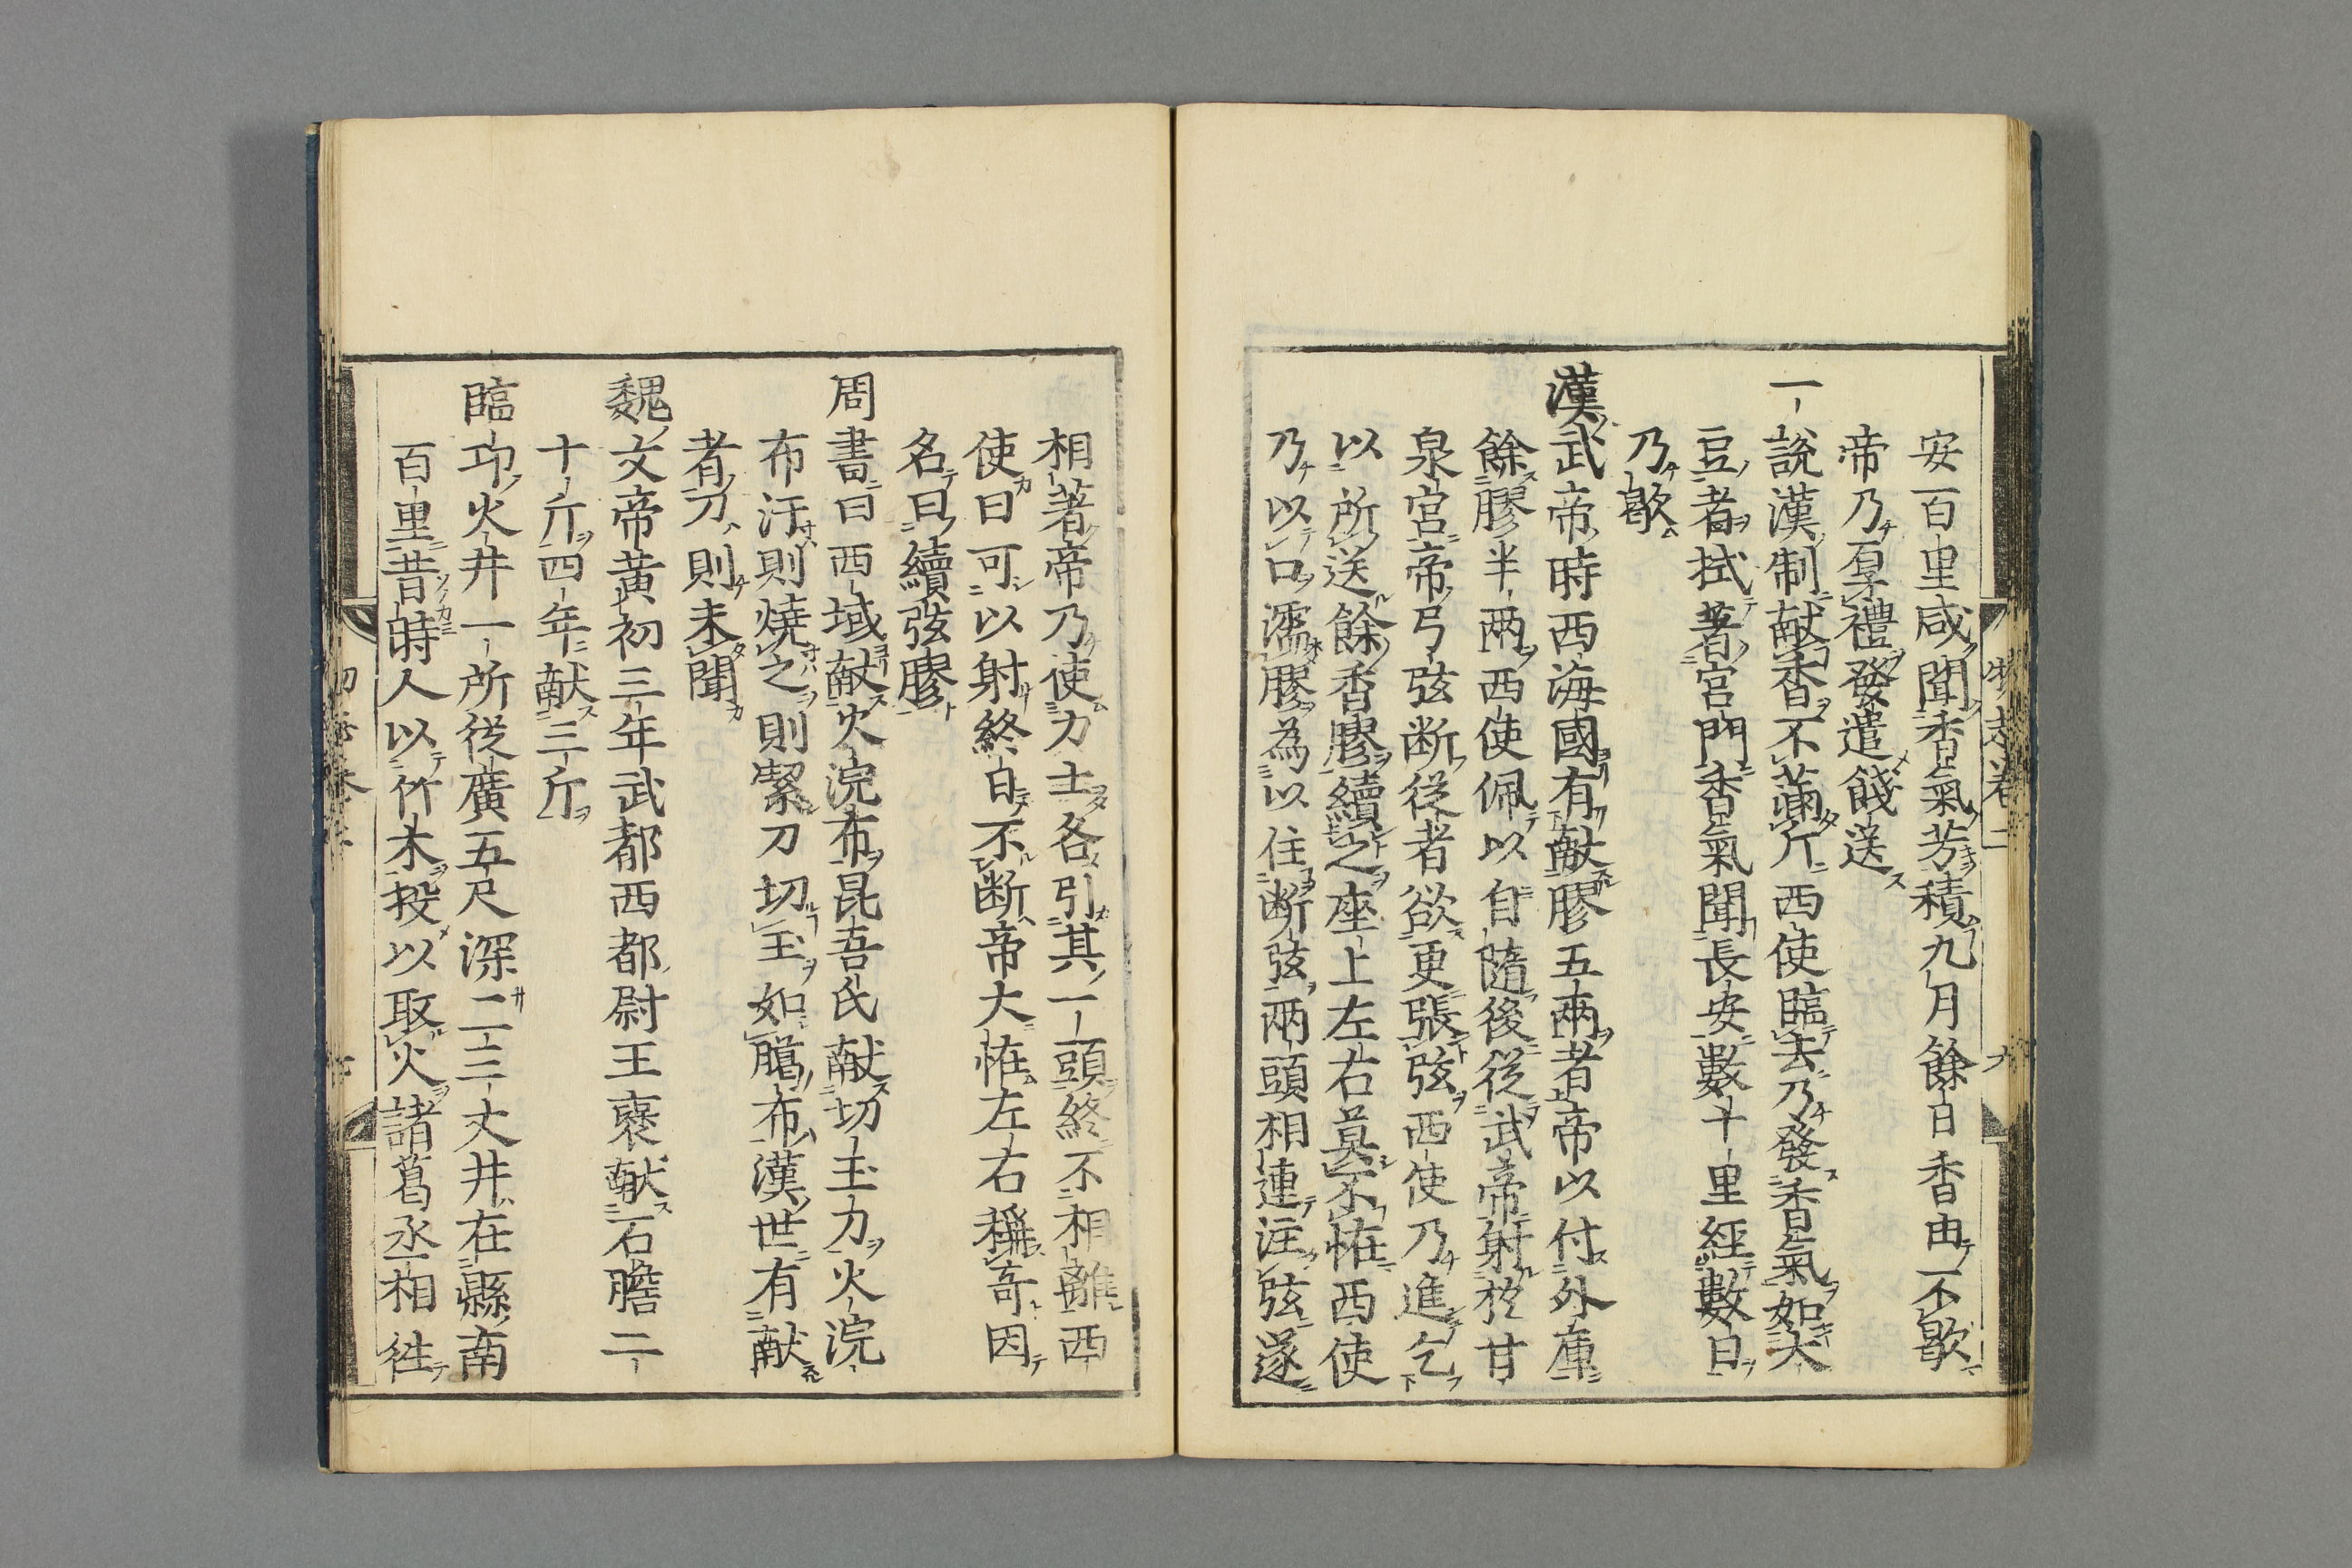 安百里咸聞香氣芳積九月餘日香由不歇
帝乃厚禮發遣餞送
一說漢制献香不滿斤西使臨去乃發香氣如大
豆者拭著宮門香氣聞長安數十里經數日
乃歇
漢武帝時西海國有献膠五兩者帝以付外庫
餘膠半兩西使佩以自隨後從武帝射於甘
泉宮帝弓弦断從者欲更張弦西使乃進乞
以所送餘香膠續之座上左右莫不恠西使
乃以口濡膠為以住断弦兩頭相連注弦遂
相著帝乃使力士各引其一頭終不相離西
使曰可以射終日不断帝大恠左右稱奇因
名曰續弦膠
周書曰西域献火浣布昆吾氏献切玉刀火浣
布汙則燒之則潔刀切玉如臈布漢世有献
者刀則未聞
魏文帝黃初三年武都西都尉王褒献石膽二
十斤四年献三斤
臨邛火井一所從廣五尺深二三丈井在縣南
百里昔時人以竹木投以取火諸葛丞相往